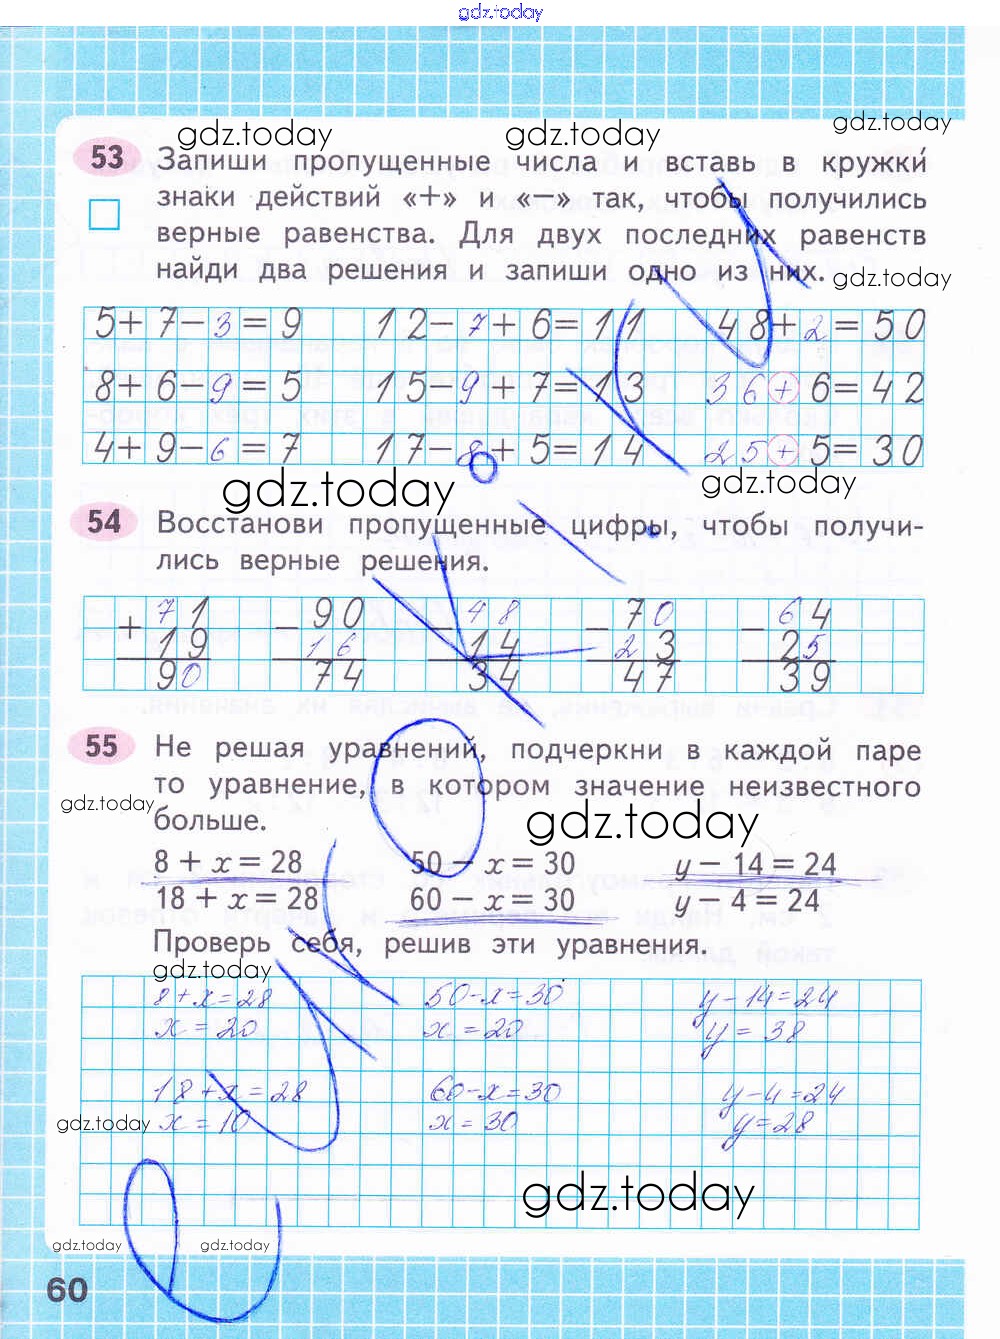 gdz.today
gdz.today gdz.today gdz.today
53 Запиши пропущенные числа и вставь в кружки
знаки действий «+» и «−» так, чтобы получились
верные равенства. Для двух последних равенств
найди два решения и запиши одно из них.
gdz.today
5+7−3=9 12−7+6=11 48+2=50
8+6−9=5 15−9+7=13 36+6=42
4+9−6=7 17−8+5=14 25+5=30
gdz.today gdz.today
54 Восстанови пропущенные цифры, чтобы получи-
лись верные решения.
71 90 48 70 64
+ − − − −
19 16 14 23 25
90 74 34 47 39
55 Не решая уравнений, подчеркни в каждой паре
то уравнение, в котором значение неизвестного
больше.
gdz.today gdz.today
8 + x = 28 50 − x = 30 y − 14 = 24
18 + x = 28 60 − x = 30 y − 4 = 24
Проверь себя, решив эти уравнения.
gdz.today
8+x=28 50-x=30 y-14=24
x=20 x=20 y=38
18+x=28 60-x=30 y-4=24
gdz.today x=10 x=30 y=28
gdz.today
gdz.today gdz.today
60